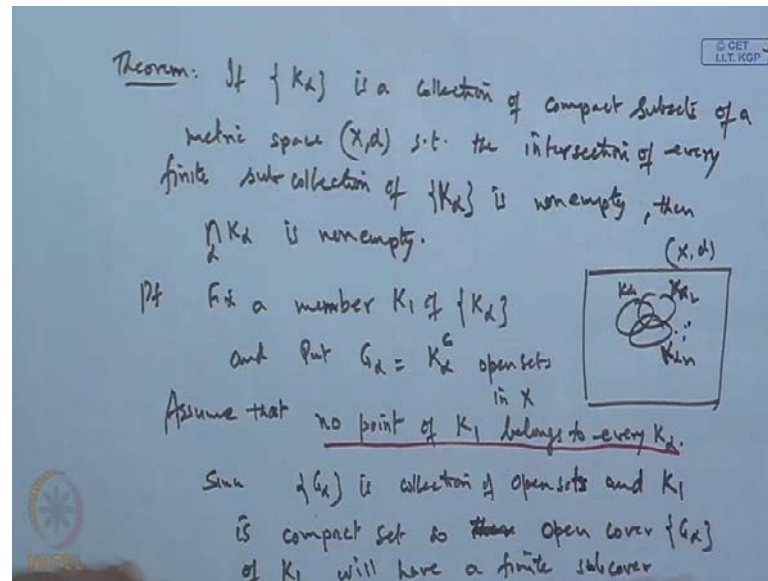 © CET
I.I.T. KGP
Theorem: If {Kα} is a collection of compact subsets of a
metric space (X,d) s.t. the intersection of every
finite subcollection of {Kα} is nonempty, then
∩α Kα is nonempty.
(X,d)
Pf Fix a member K1 of {Kα}
Kα1 Kα2
and Put Gα = Kα^c open sets
Kαn
in X
Assume that no point of K1 belongs to every Kα.
Since {Gα} is collection of open sets and K1
is compact set so open cover {Gα}
of K1 will have a finite subcover
NPTEL